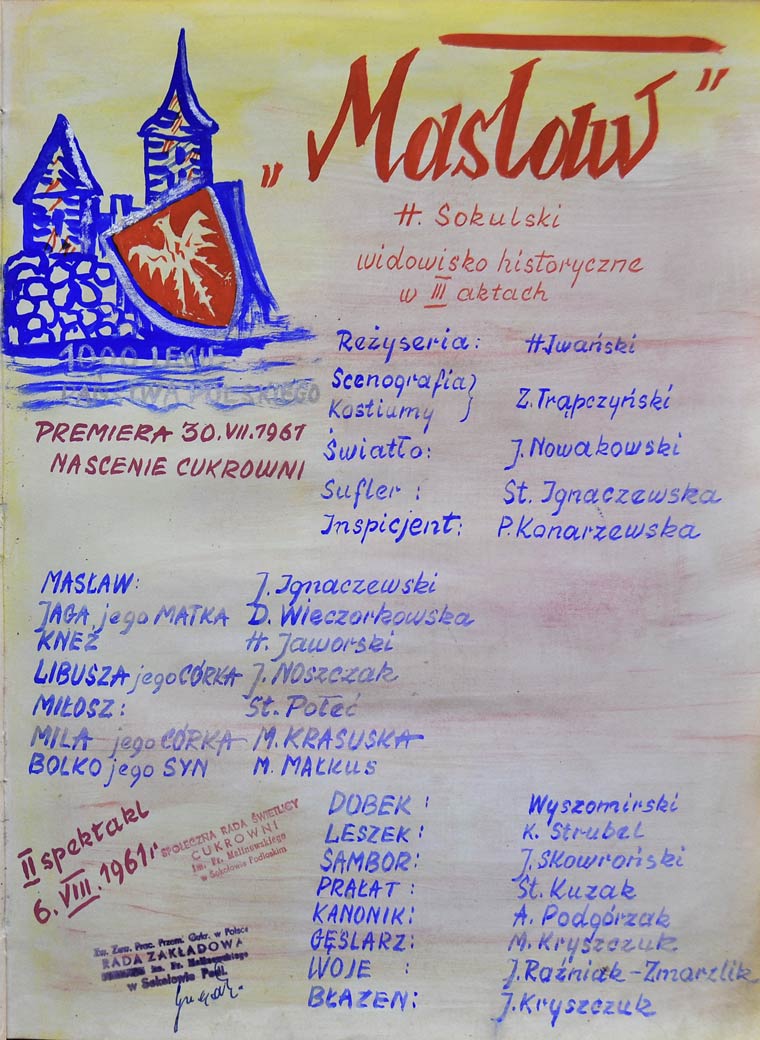 „Masław”
H. Sokulski
widowisko historyczne
w III aktach
1000 LECIE
PAŃSTWA POLSKIEGO
PREMIERA 30.VII.1961
NASCENIE CUKROWNI
Reżyseria: H Iwański
Scenografia }
Kostiumy } Z. Trąpczyński
Światło: J. Nowakowski
Sufler : St. Ignaczewska
Inspicjent: P. Konarzewska
MASŁAW: J. Ignaczewski
JAGA jego MATKA D. Wieczorkowska
KNEŹ H. Jaworski
LIBUSZA jego CÓRKA J. NOSZCZAK
MIŁOSZ: St. Połeć
MILA jego CÓRKA M. KRASUSKA
BOLKO jego SYN M. MAŁKUS
DOBEK : Wyszomirski
LESZEK : K. Strubel
SAMBOR: J. Skowroński
PRAŁAT : St. Kuzak
KANONIK: A. Podgórzak
GĘŚLARZ: M. Kryszczuk
WOJE : J. Raźniak-Zmarzlik
BŁAZEN: J. Kryszczuk
II spektakl
6.VIII.1961 r
SPOŁECZNA RADA ŚWIETLICY
CUKROWNI
im. Fr. Malinowskiego
w Sokołowie Podlaskim
Zw. Zaw. Prac. Przem. Cukr. w Polsce
RADA ZAKŁADOWA
im. Fr. Malinowskiego
w Sokołowie Podl.